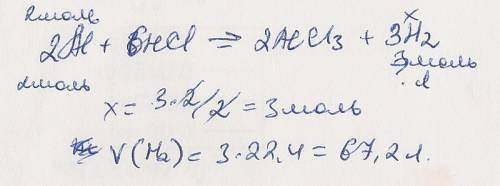 2моль x
2Al + 6HCl = 2AlCl3 + 3H2
2моль 3моль
x = 3·2/2 = 3моль
V(H2) = 3·22,4 = 67,2л.